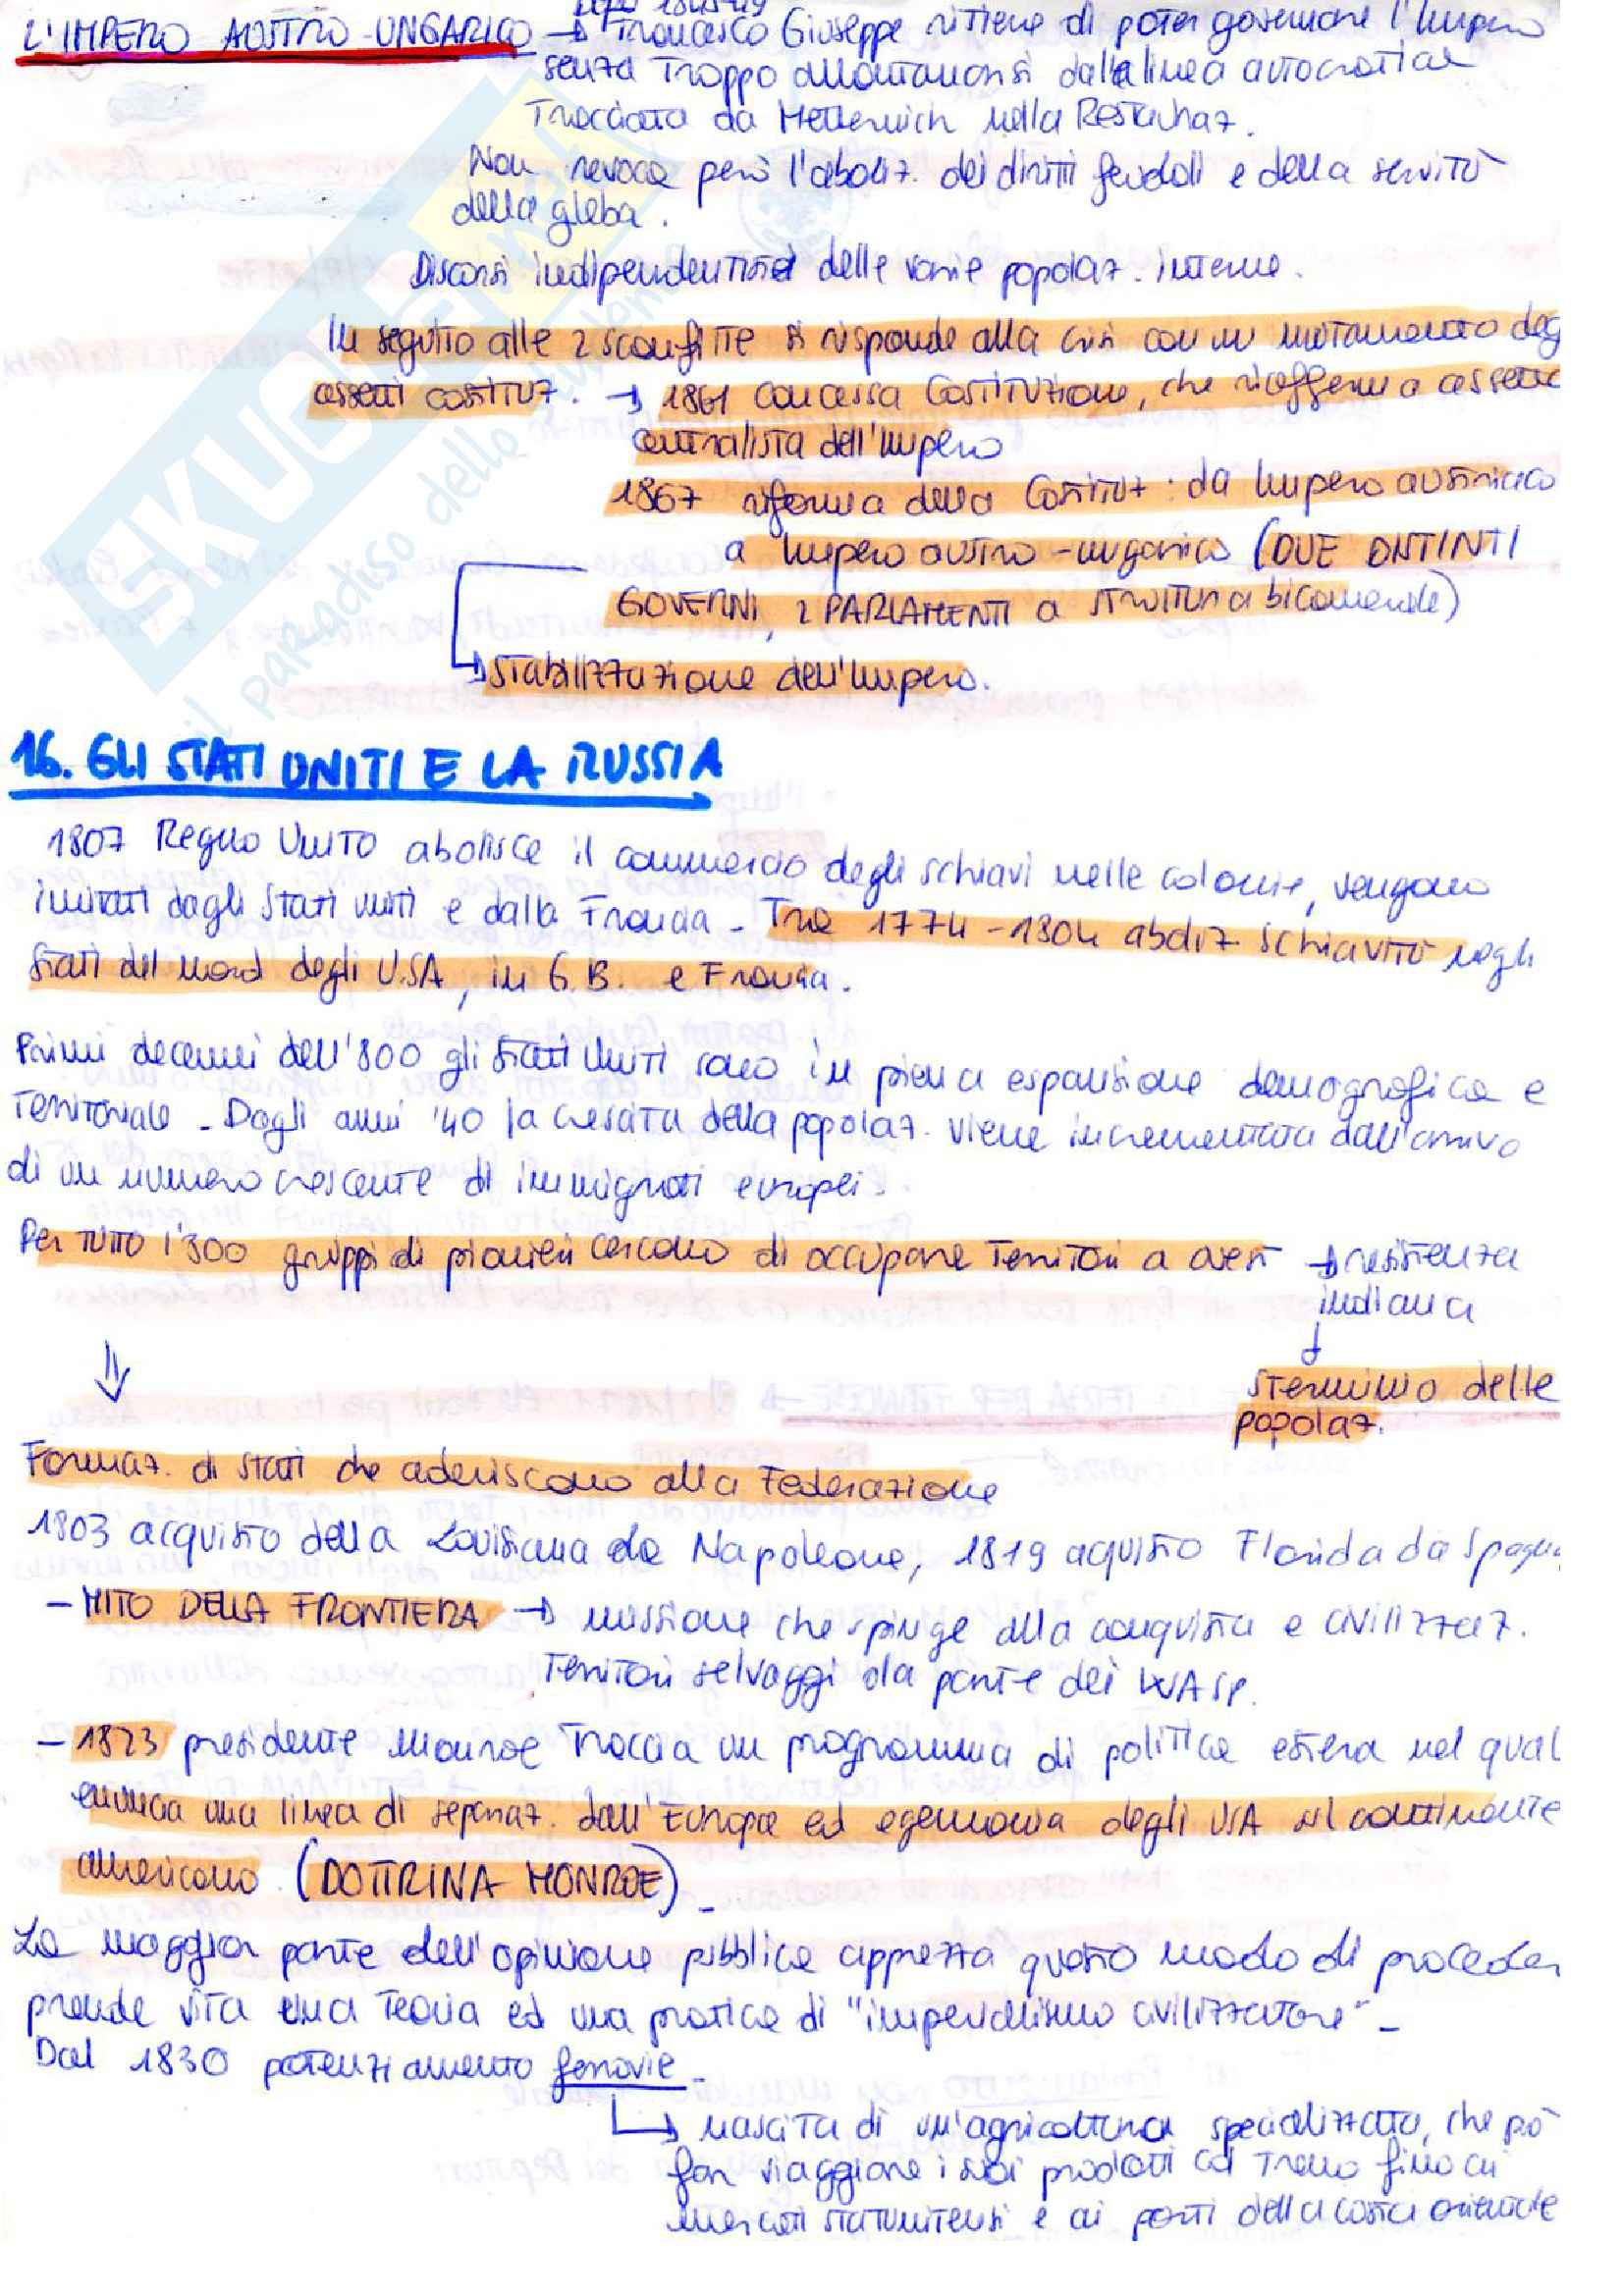 dopo 1848-49
L'IMPERO AUSTRO-UNGARICO → Francesco Giuseppe ritiene di poter governare l'Impero
senza troppo allontanarsi dalla linea autocratica
Tracciata da Metternich nella Restauraz.
Non revoca però l'aboliz. dei diritti feudali e della servitù
della gleba.
Discorsi indipendentisti delle varie popolaz. interne.
In seguito alle 2 sconfitte si risponde alla crisi con un mutamento deg
assetti costituz. → 1861 concessa Costituzione, che riafferma assetto
centralista dell'Impero
1867 riforma della Costituz: da Impero austriaco
a Impero austro-ungarico (DUE DISTINTI
GOVERNI, 2 PARLAMENTI a struttura bicamerale)
→ Stabilizzazione dell'Impero.
SKUOLA.net
il paradiso dello studente
16. GLI STATI UNITI E LA RUSSIA
1807 Regno Unito abolisce il commercio degli schiavi nelle colonie, vengono
imitati dagli Stati uniti e dalla Francia - Tra 1774-1804 aboliz schiavitù negli
Stati del nord degli U.S.A, in G.B. e Francia.
Primi decenni dell'800 gli Stati Uniti sono in piena espansione demografica e
Territoriale - Dagli anni '40 la crescita della popolaz. viene incrementata dall'arrivo
di un numero crescente di immigrati europei.
Per TUTTO l'800 gruppi di pionieri cercano di occupare Territori a ovest → resistenza
indiana
↓
sterminio delle
popolaz.
⇓
Formaz. di stati che aderiscono alla Federazione
1803 acquisto della Louisiana da Napoleone, 1819 aquisto Florida da Spagna
- MITO DELLA FRONTIERA → missione che spinge alla conquista e civilizzaz.
Territori selvaggi da parte dei WASP.
- 1823 presidente Monroe Traccia un programma di politica estera nel qual
enuncia una linea di separaz. dall'Europa ed egemonia degli USA sul continente
americano (DOTTRINA MONROE) -
La maggior parte dell'opinione pubblica apprezza questo modo di proceder
prende vita una Teoria ed una pratica di "imperialismo civilizzatore" -
Dal 1830 potenziamento ferrovie -
→ nascita di un'agricoltura specializzata, che può
far viaggiare i suoi prodotti col Treno fino ai
mercati statunitensi e ai porti della costa orientale